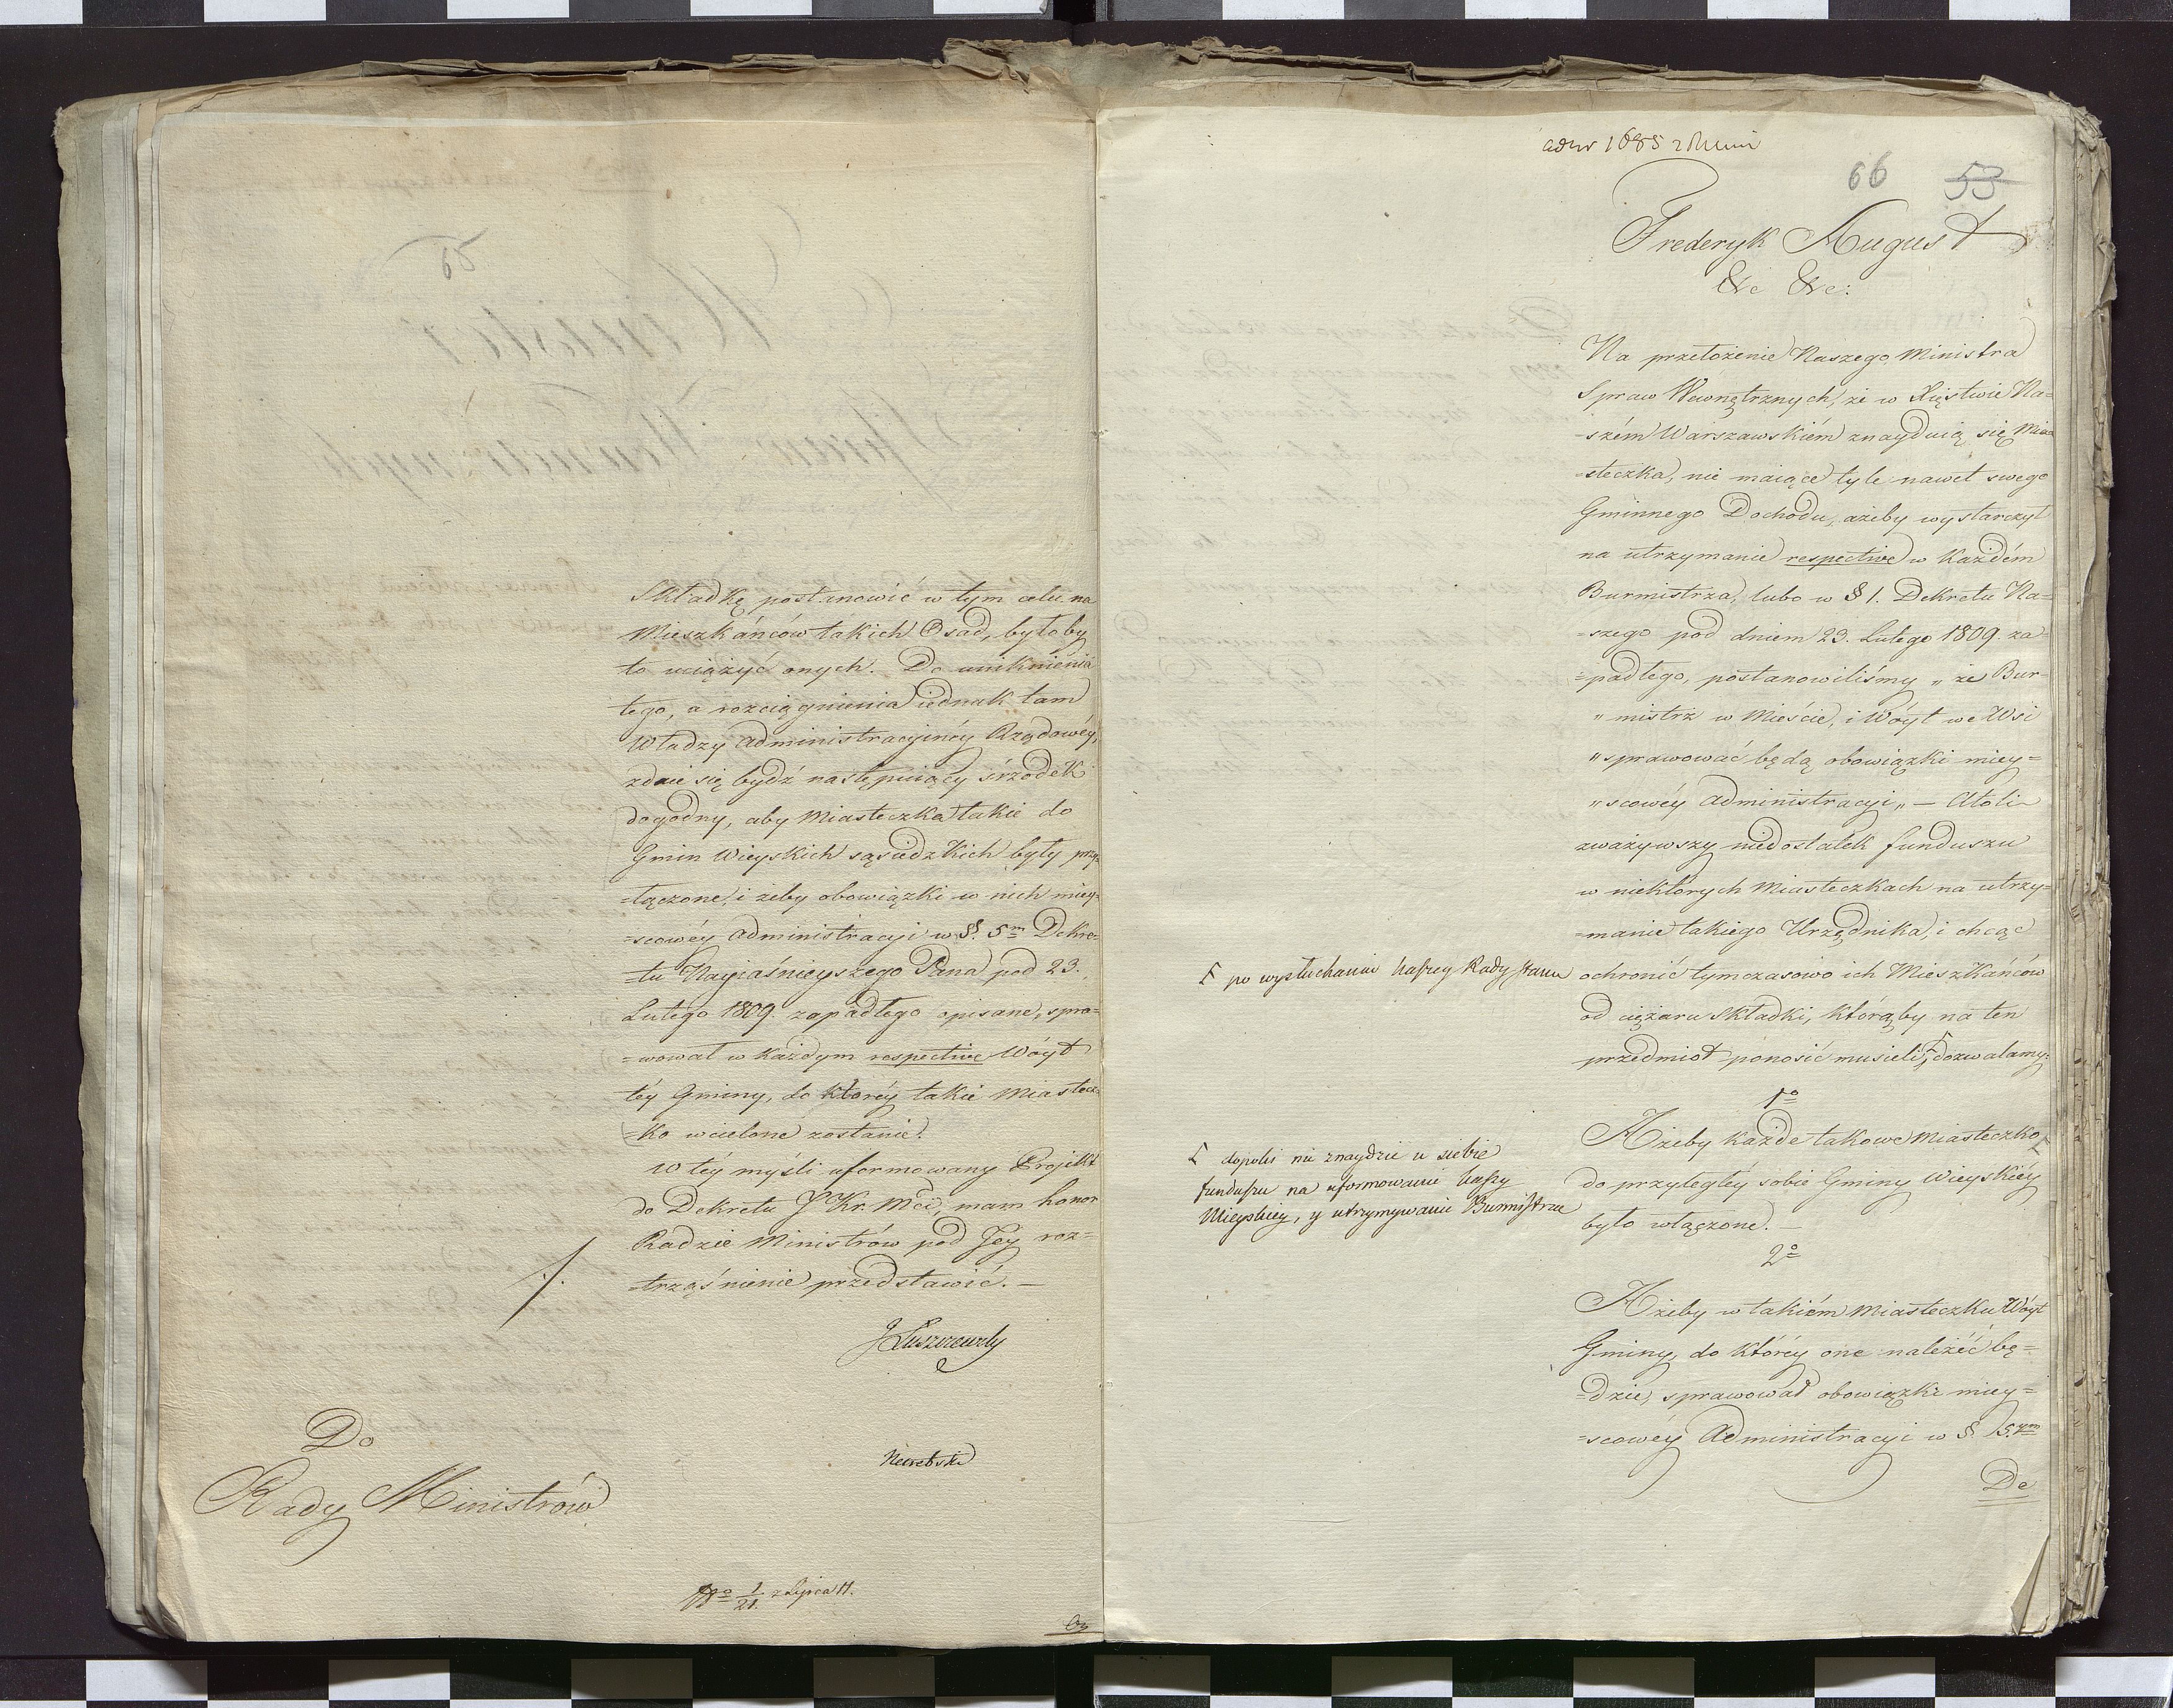 65
Składkę postanowić w tym celu na
Mieszkańców takich Osad, byłoby
to uciążyć onych. Do uniknienia
tego, a rozciągnienia iednak tam
Władzy Administracyinéy Rządowéy,
zdaie się bydź następuiący śrzodek
dogodny, aby Miasteczka takie do
Gmin Wieyskich sąsiedzkich były przy=
=łączone, i żeby obowiązki w nich miey=
=scowéy Administracyi w §. 5m Dekre=
tu Nayiaśnieyszego Pana pod 23.
Lutego 1809. zapadłego opisane, spra=
=wował w każdym respective Wóyt
téy Gminy, do któréy takie Miastecz=
=ko wcielone zostanie.
W téy myśli uformowany Projekt
do Dekretu J Kr. Mci, mam honor
Radzie Ministrów pod Jey roz=
=trząśnienie przedstawić. —
J Łuszczewsky
Niewębski
Do
Rady Ministrów
No 1/21. z Lipca 11.
66 53
Frederyk August
&c &c:
Na przełożenie Naszego Ministra
Spraw Wewnętrznych, że w Xięstwie Na=
=szém Warszawskiém znayduią się Mia=
=steczka, nie maiące tyle nawet swego
Gminnego Dochodu, ażeby wystarczył
na utrzymanie respective w każdém
Burmistrza, lubo w § 1. Dekretu Na=
=szego pod dniem 23. Lutego 1809. za=
=padłego, postanowiliśmy „ że Bur=
„ mistrz w Mieście, i Wóyt we Wsi
„ sprawować będą obowiązki miey=
„ scowéy Administracyi „ — Atoli
zważywszy niedostatek funduszu
w niektórych Miasteczkach na utrzy=
=manie takiego Urzędnika, i chcąc
ochronić tymczasowo ich Mieszkańców
od ciężaru składki, którąby na ten
przedmiot ponosić musieli, dozwalamy:
po wysłuchaniu Naszey Rady Stanu
1o
Ażeby każde takowe Miasteczko,
do przyległéy sobie Gminy Wieyskiéy
było włączone. —
dopoki nie znaydzie u siebie
funduszu na uformowanie kassy
Mieyskiey, y utrzymywanie Burmistrza
2o
Ażeby w takiém Miasteczku Wóyt
Gminy, do któréy one należéć bę=
=dzie, sprawował obowiązki miey=
=scowéy Administracyi w §. 5.ym
De